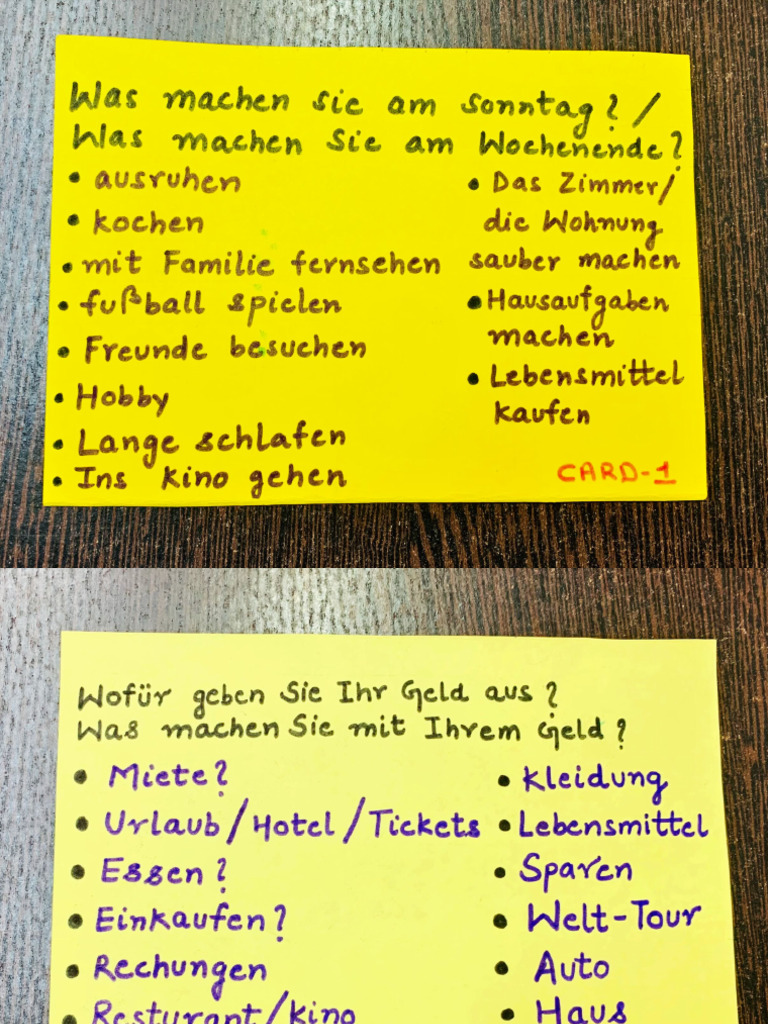 Was machen sie am Sonntag? /
Was machen Sie am Wochenende?
• ausruhen
• kochen
• mit Familie fernsehen
• fußball spielen
• Freunde besuchen
• Hobby
• Lange schlafen
• Ins Kino gehen
• Das Zimmer/
die Wohnung
sauber machen
• Hausaufgaben
machen
• Lebensmittel
kaufen
CARD-1
Wofür geben Sie Ihr Geld aus?
Was machen Sie mit Ihrem Geld?
• Miete?
• Urlaub/Hotel/Tickets
• Essen?
• Einkaufen?
• Rechungen
• Resturant/Kino
• Kleidung
• Lebensmittel
• Sparen
• Welt-Tour
• Auto
• Haus